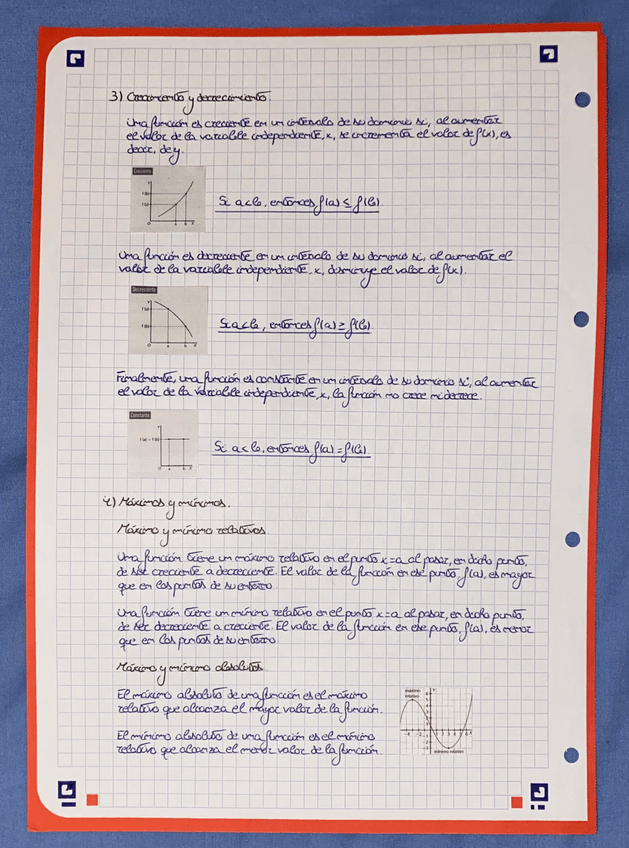 3) Crecimiento y decrecimiento.
Una función es creciente en un intervalo de su dominio si, al aumentar
el valor de la variable independiente, x, se incrementa el valor de f(x), es
decir, de y.
Creciente
Si a<b, entonces f(a) ≤ f(b)
Una función es decreciente en un intervalo de su dominio si, al aumentar el
valor de la variable independiente, x, disminuye el valor de f(x).
Decreciente
Si a<b, entonces f(a) ≥ f(b)
Finalmente, una función es constante en un intervalo de su dominio si, al aumentar
el valor de la variable independiente, x, la función no crece ni decrece.
Constante
f (a) = f (b)
Si a<b, entonces f(a) = f(b)
4) Máximos y mínimos.
Máximo y mínimo relativos.
Una función tiene un máximo relativo en el punto x=a al pasar, en dicho punto,
de ser creciente a decreciente. El valor de la función en ese punto, f(a), es mayor
que en los puntos de su entorno.
Una función tiene un mínimo relativo en el punto x=a al pasar, en dicho punto,
de ser decreciente a creciente. El valor de la función en ese punto, f(a), es menor
que en los puntos de su entorno.
Máximo y mínimo absolutos.
El máximo absoluto de una función es el máximo
relativo que alcanza el mayor valor de la función.
máximo
relativo
mínimo relativo
El mínimo absoluto de una función es el mínimo
relativo que alcanza el menor valor de la función.